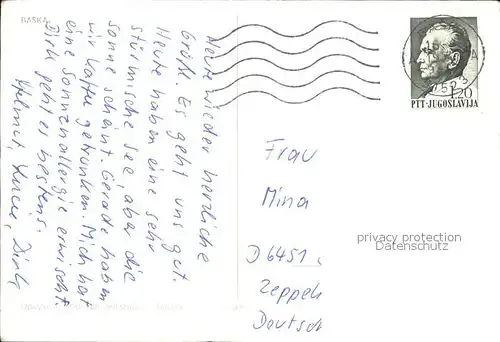 BAŠKA
Heute wieder herzliche
Grüße. Es geht uns gut.
Heute haben eine sehr
stürmische See, aber die
Sonne scheint. Gerade haben
wir Kaffee getrunken. Mich hat
eine Sonnenallergie erwischt.
Dirk geht es bestens.
Helmut, Dirk
1.20
PTT-JUGOSLAVIJA
Frau
Mina
D 6451
Zeppel
Deutsch
privacy protection
Datenschutz